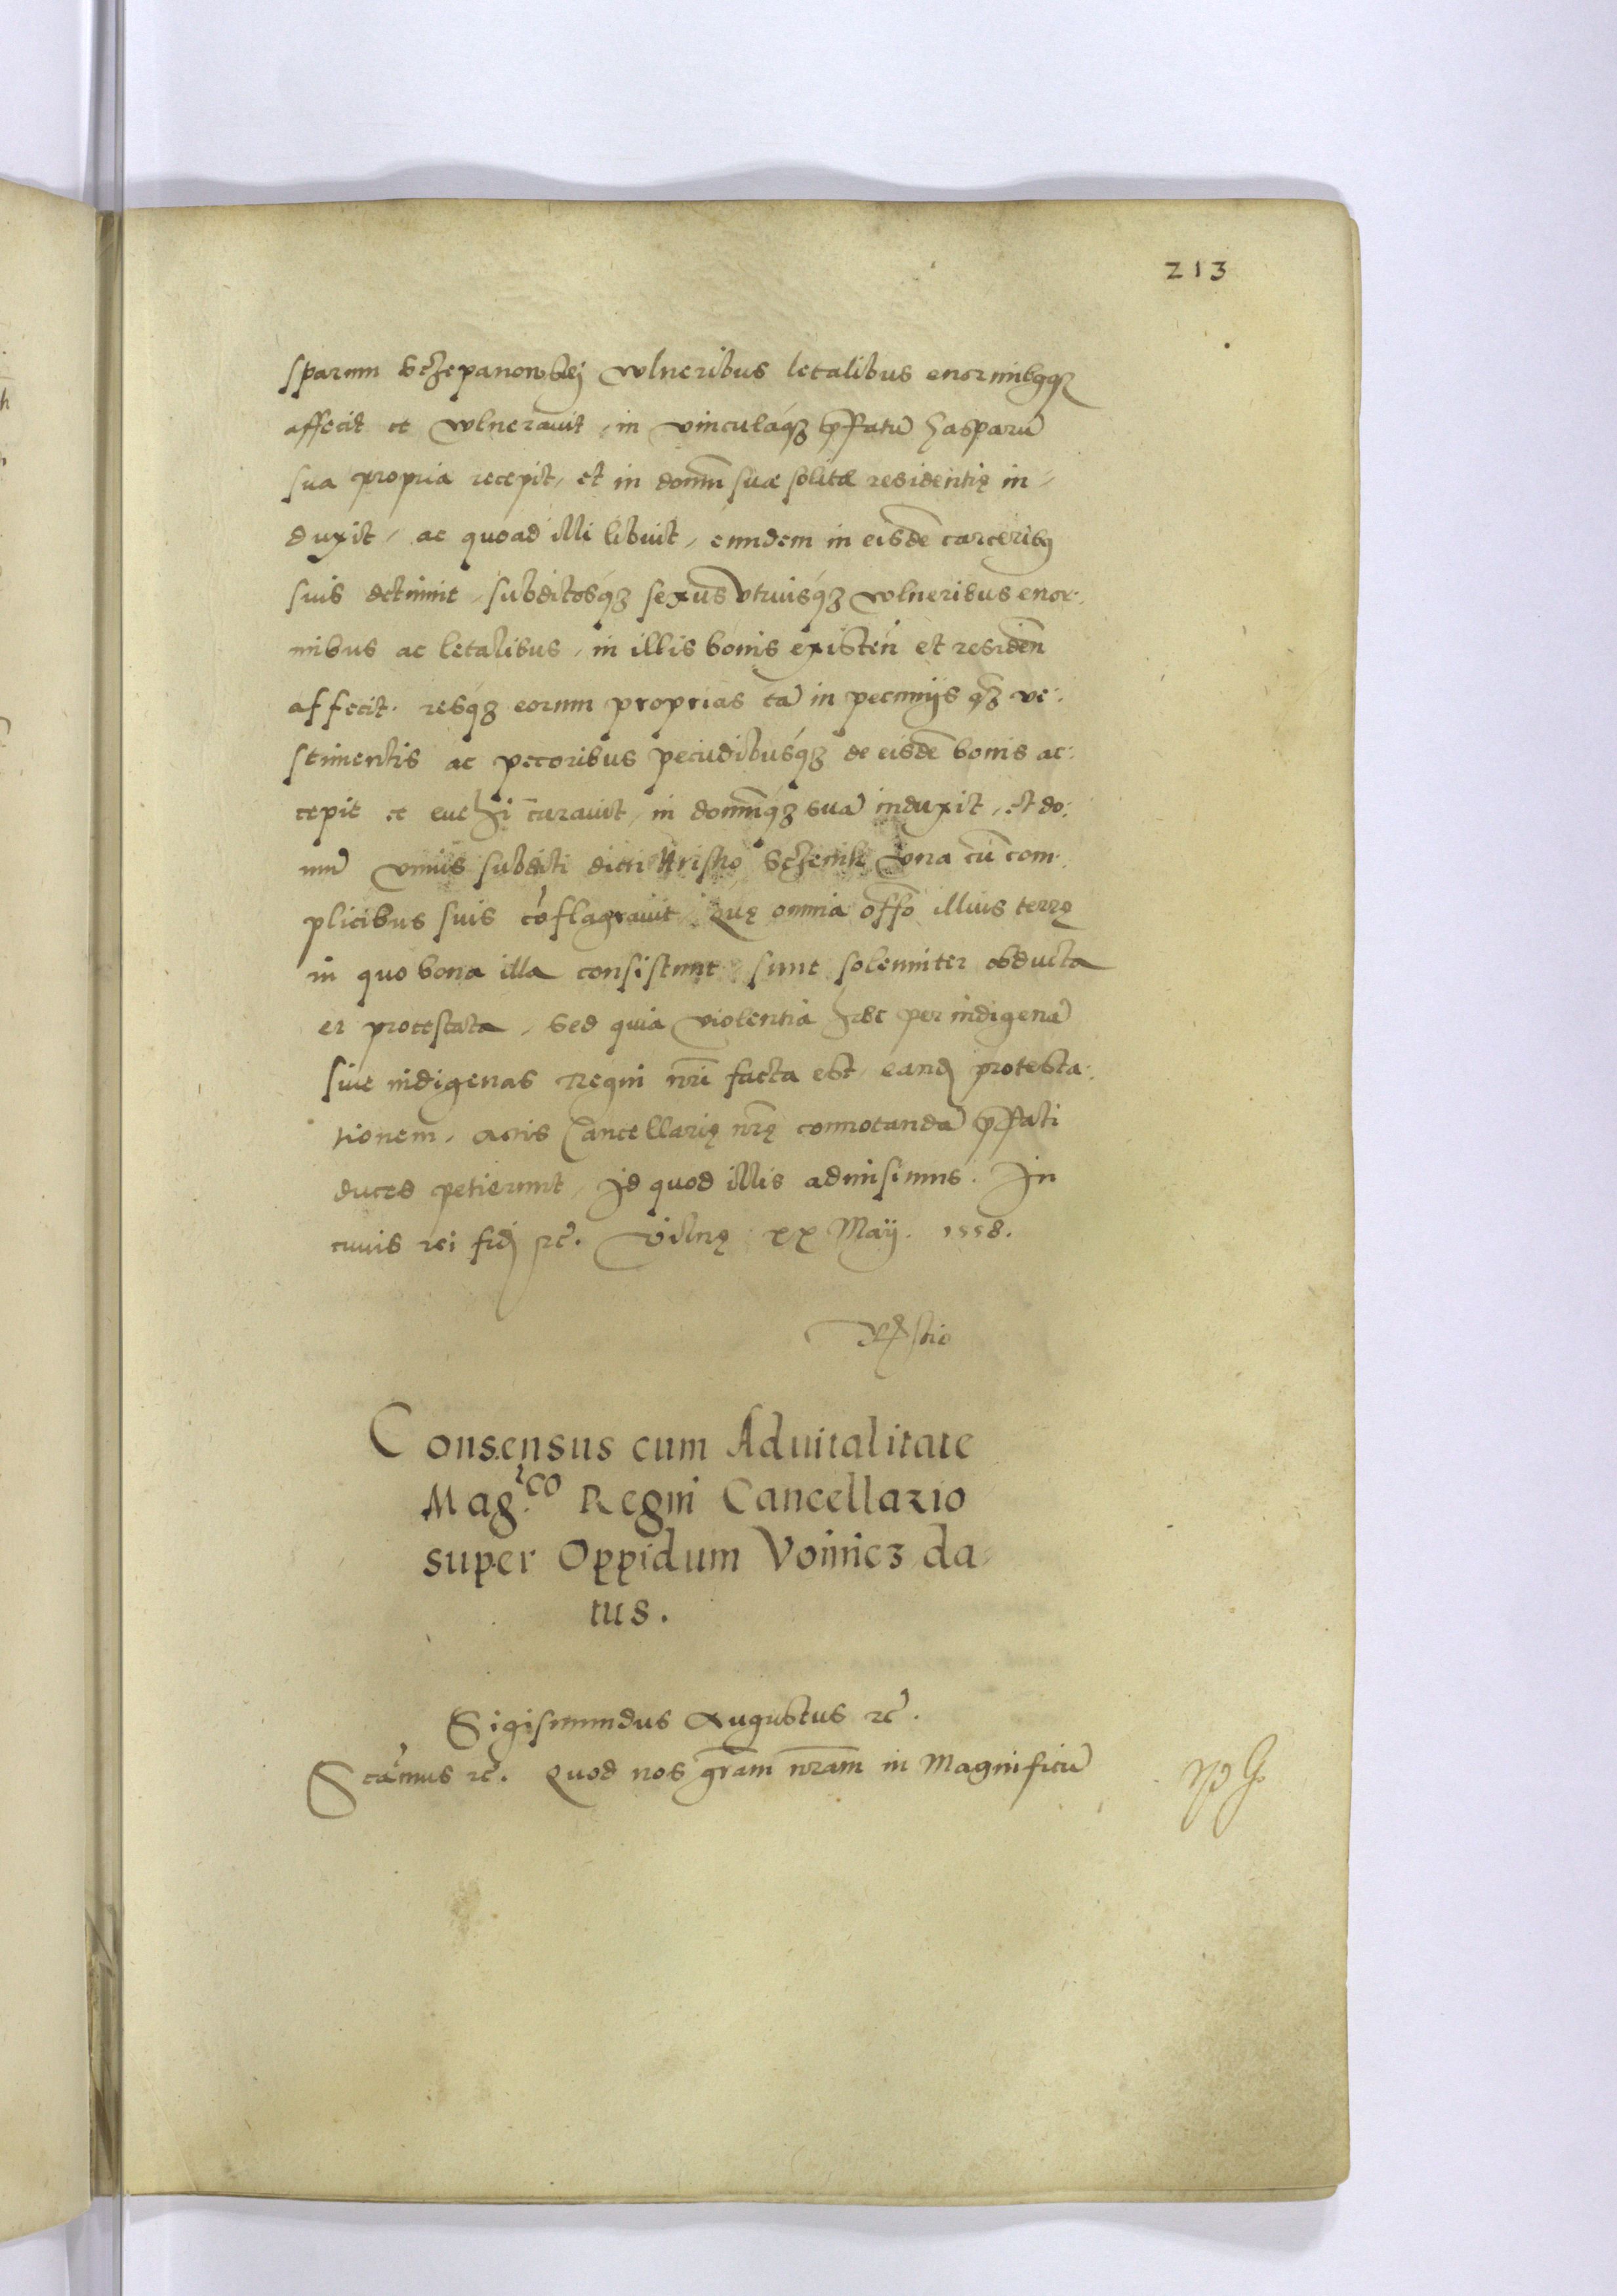 213
sparum Sczepanowskij vulneribus letalibus enormibqȝ
affecit et vulneravit, in vinculaqȝ p̄fatū Gasparū
sua propria recepit, et in domū suæ solitæ residentię in-
duxit, ac quoad illi libuit, eundem in eisdē carceribȝ
suis detinuit, subditosqȝ sexus utriusqȝ vulneribus enor:
mibus ac letalibus, in illis bonis existeñ et resideñ
affecit. resqȝ eorum proprias tā in pecunijs qȝ ve:
stimentis ac pecoribus pecudibusqȝ de eisdē bonis ac:
cepit et evehi curavit, in domūqȝ suā induxit, et do:
mū unius subditi dicti Hrisko Sczenik una cū com:
plicibus suis cōflagravit. Quę omnia offō illius terrę
in quo bona illa consistunt sunt solenniter obducta
et protestata, Sed quia violentia hæc per indigenā
sive indigenas Regni nr̄i facta est, eand̄ protesta:
tionem, Actis Cancellarię nr̄ę connotandā p̄fati
duces petierunt, Id quod illis admisimus. In
cuius rei fid̄ etc̄. Vilnę xx Maij. 1558.
Consensus cum Advitalitate
Mag.ᶜᵒ Regni Cancellario
super Oppidum Voinicz da-
tus.
Sigismundus Augustus etc̄.
Sc̄amus etc̄. Quod nos gr̄am nr̄am in Magnificū